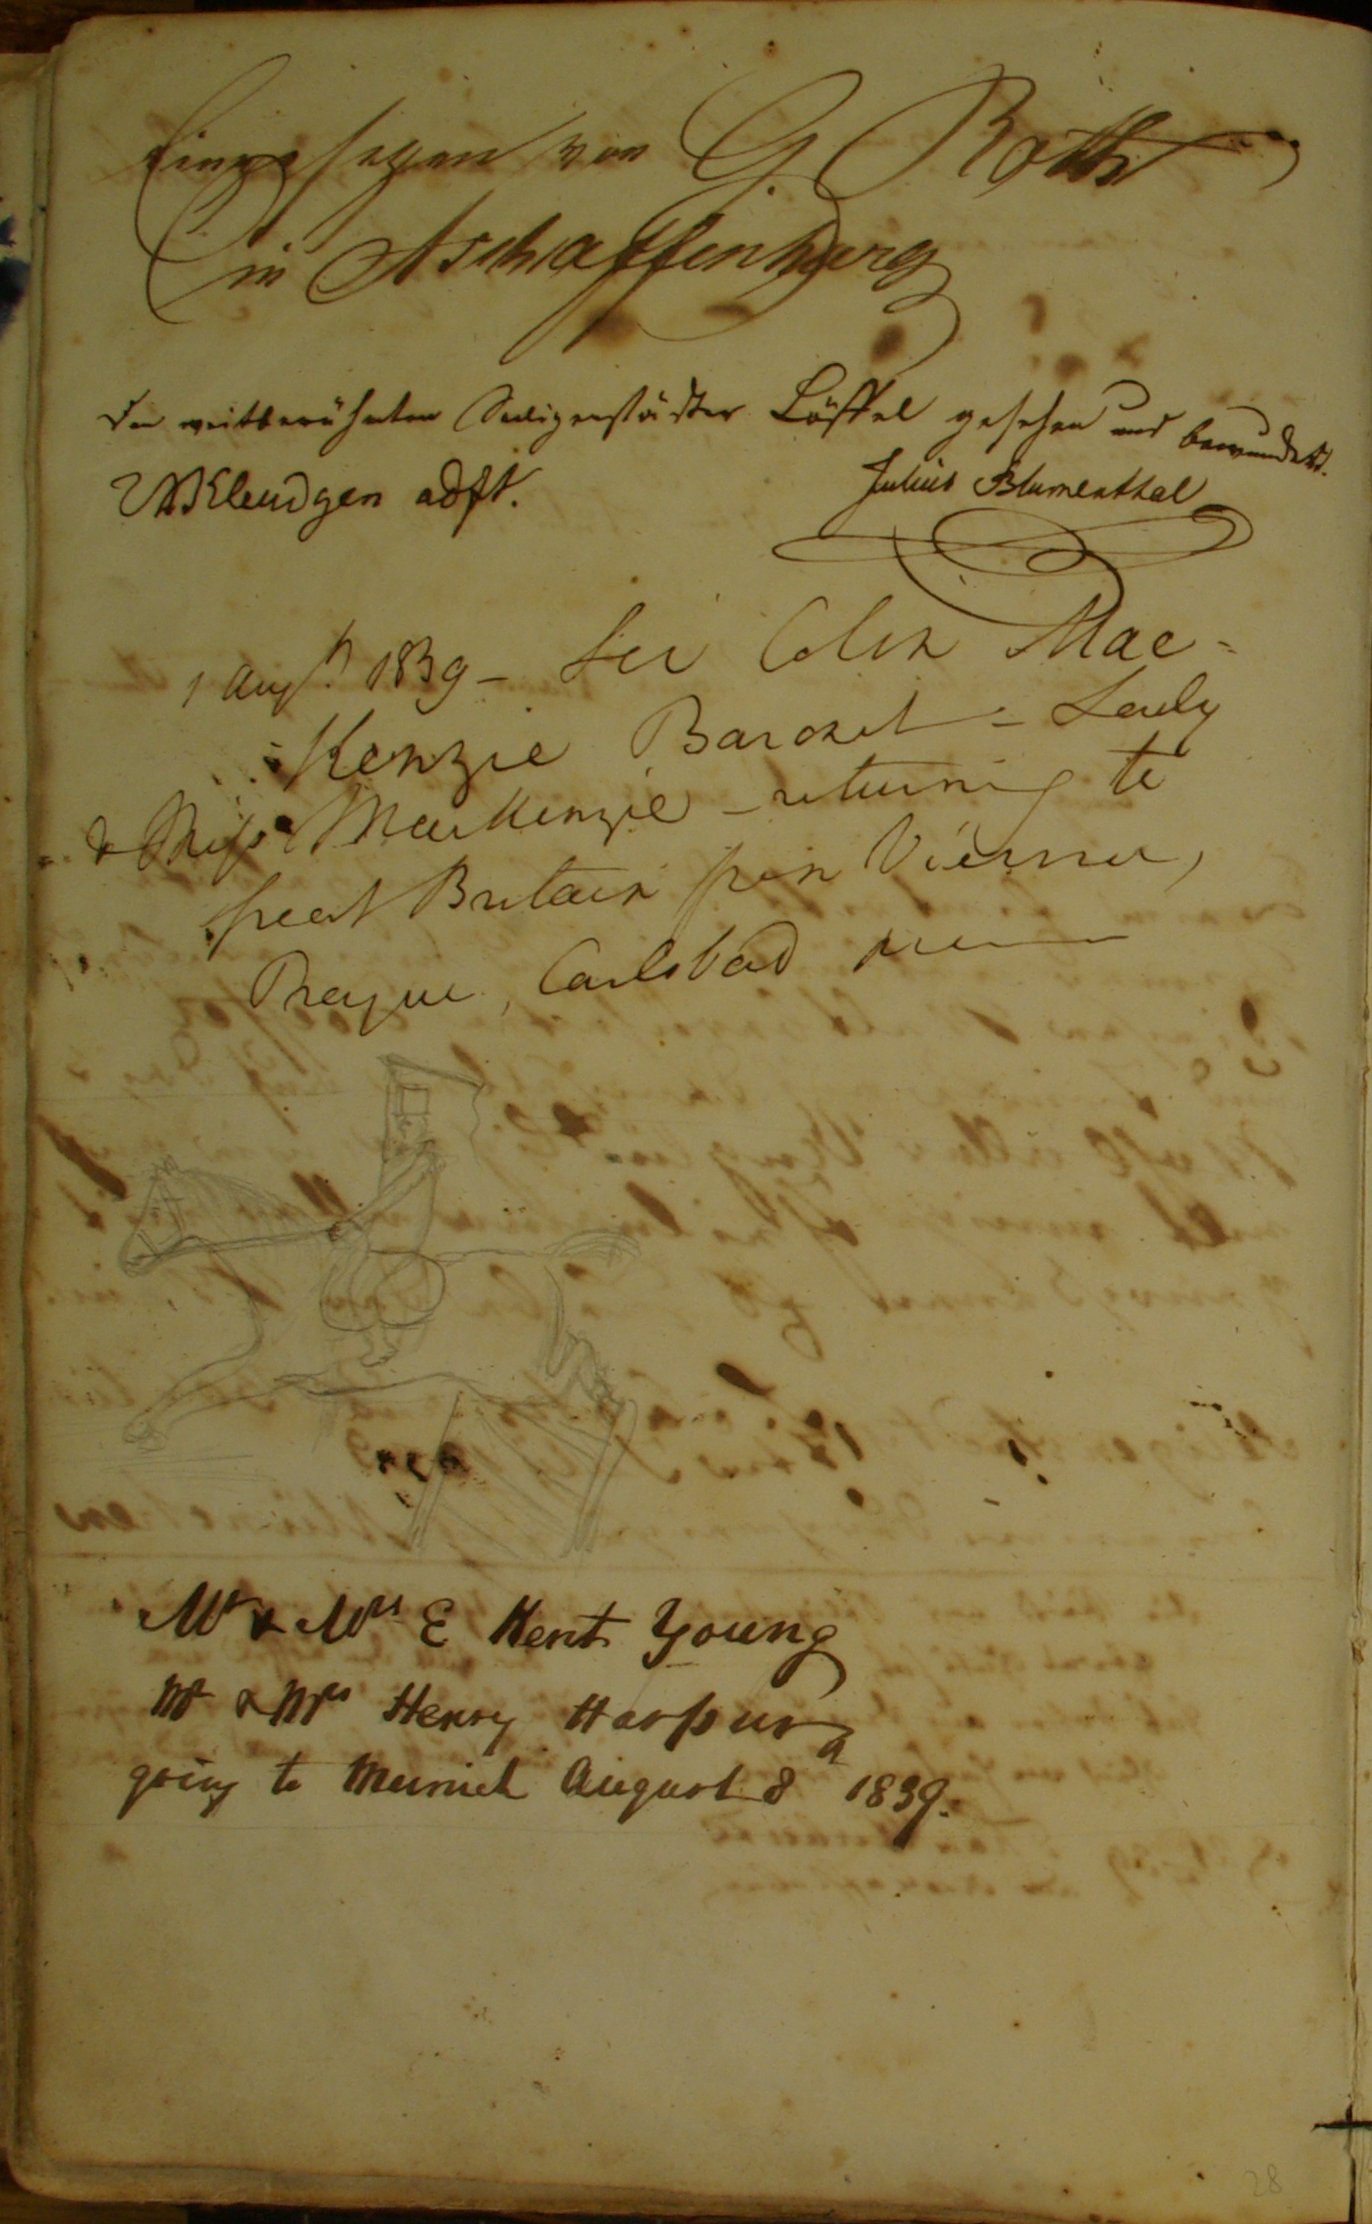 Eingesehen von G. Roth
in Aschaffenburg
Den weitberühmten Seeligenstädter Löffel gesehen und bewundert.
Julius Blumenthal
1 Augt. 1839 – Sir Colin Mac-
Kenzie Baronet – Lady
& Miss MacKenzie – returning to
great Britain from Vienna,
Prague, Carlsbad
Mr & Mrs E Kent Young
Mr & Mrs Henry Harpur
going to Munich August 8th 1839.
28